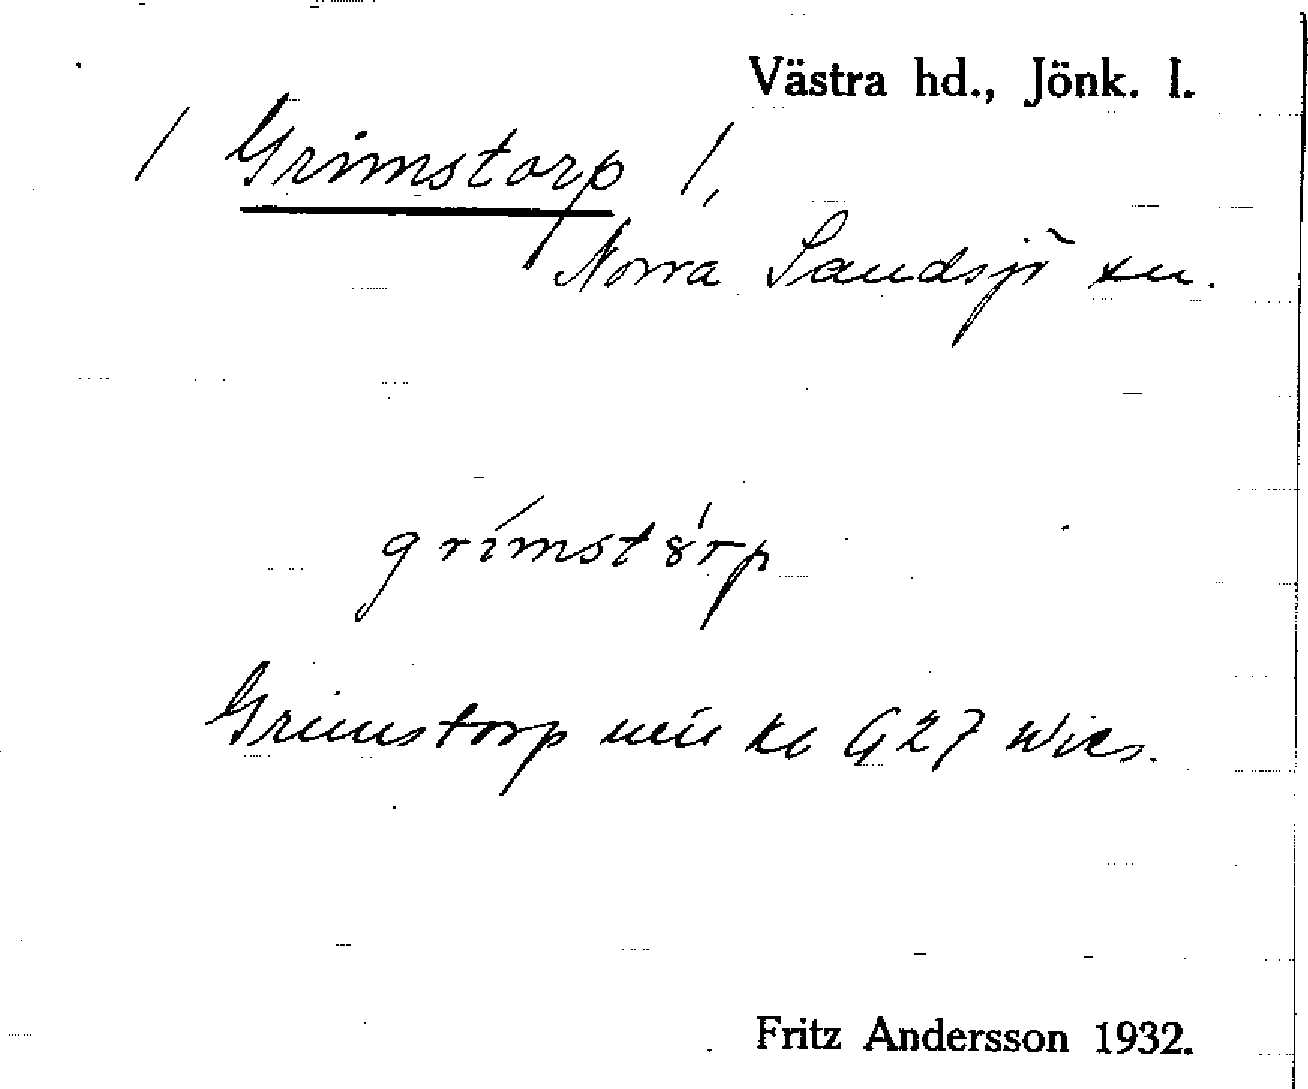 Västra hd., Jönk. l.
/ Grimstorp /,
Norra Sandsjö sn.
grimstårp
Grimstorp kl G27 Wies.
Fritz Andersson 1932.